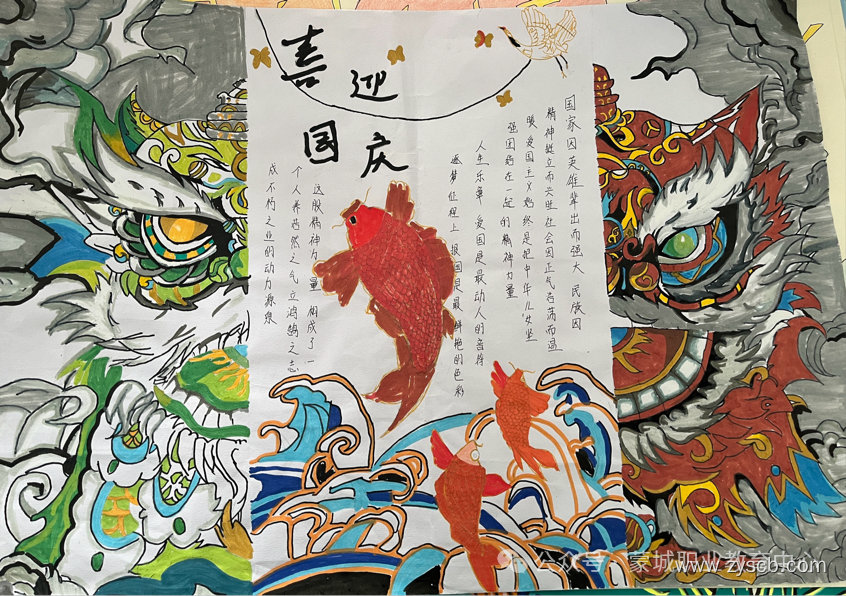 喜迎
国庆
国家因英雄辈出而强大 民族因
精神挺立而兴旺社会因正气浩荡而温
暖爱国主义始终是把中华儿女坚
强团结在一起的精神力量
人生乐章 爱国是最动人的音符
逐梦征程上 报国是最鲜艳的色彩
这股精神力量 构成了一
个人养浩然之气立鸿鹄之志
成不朽之业的动力源泉
公众号·蒙城职业教育中心
www.zyscb.com